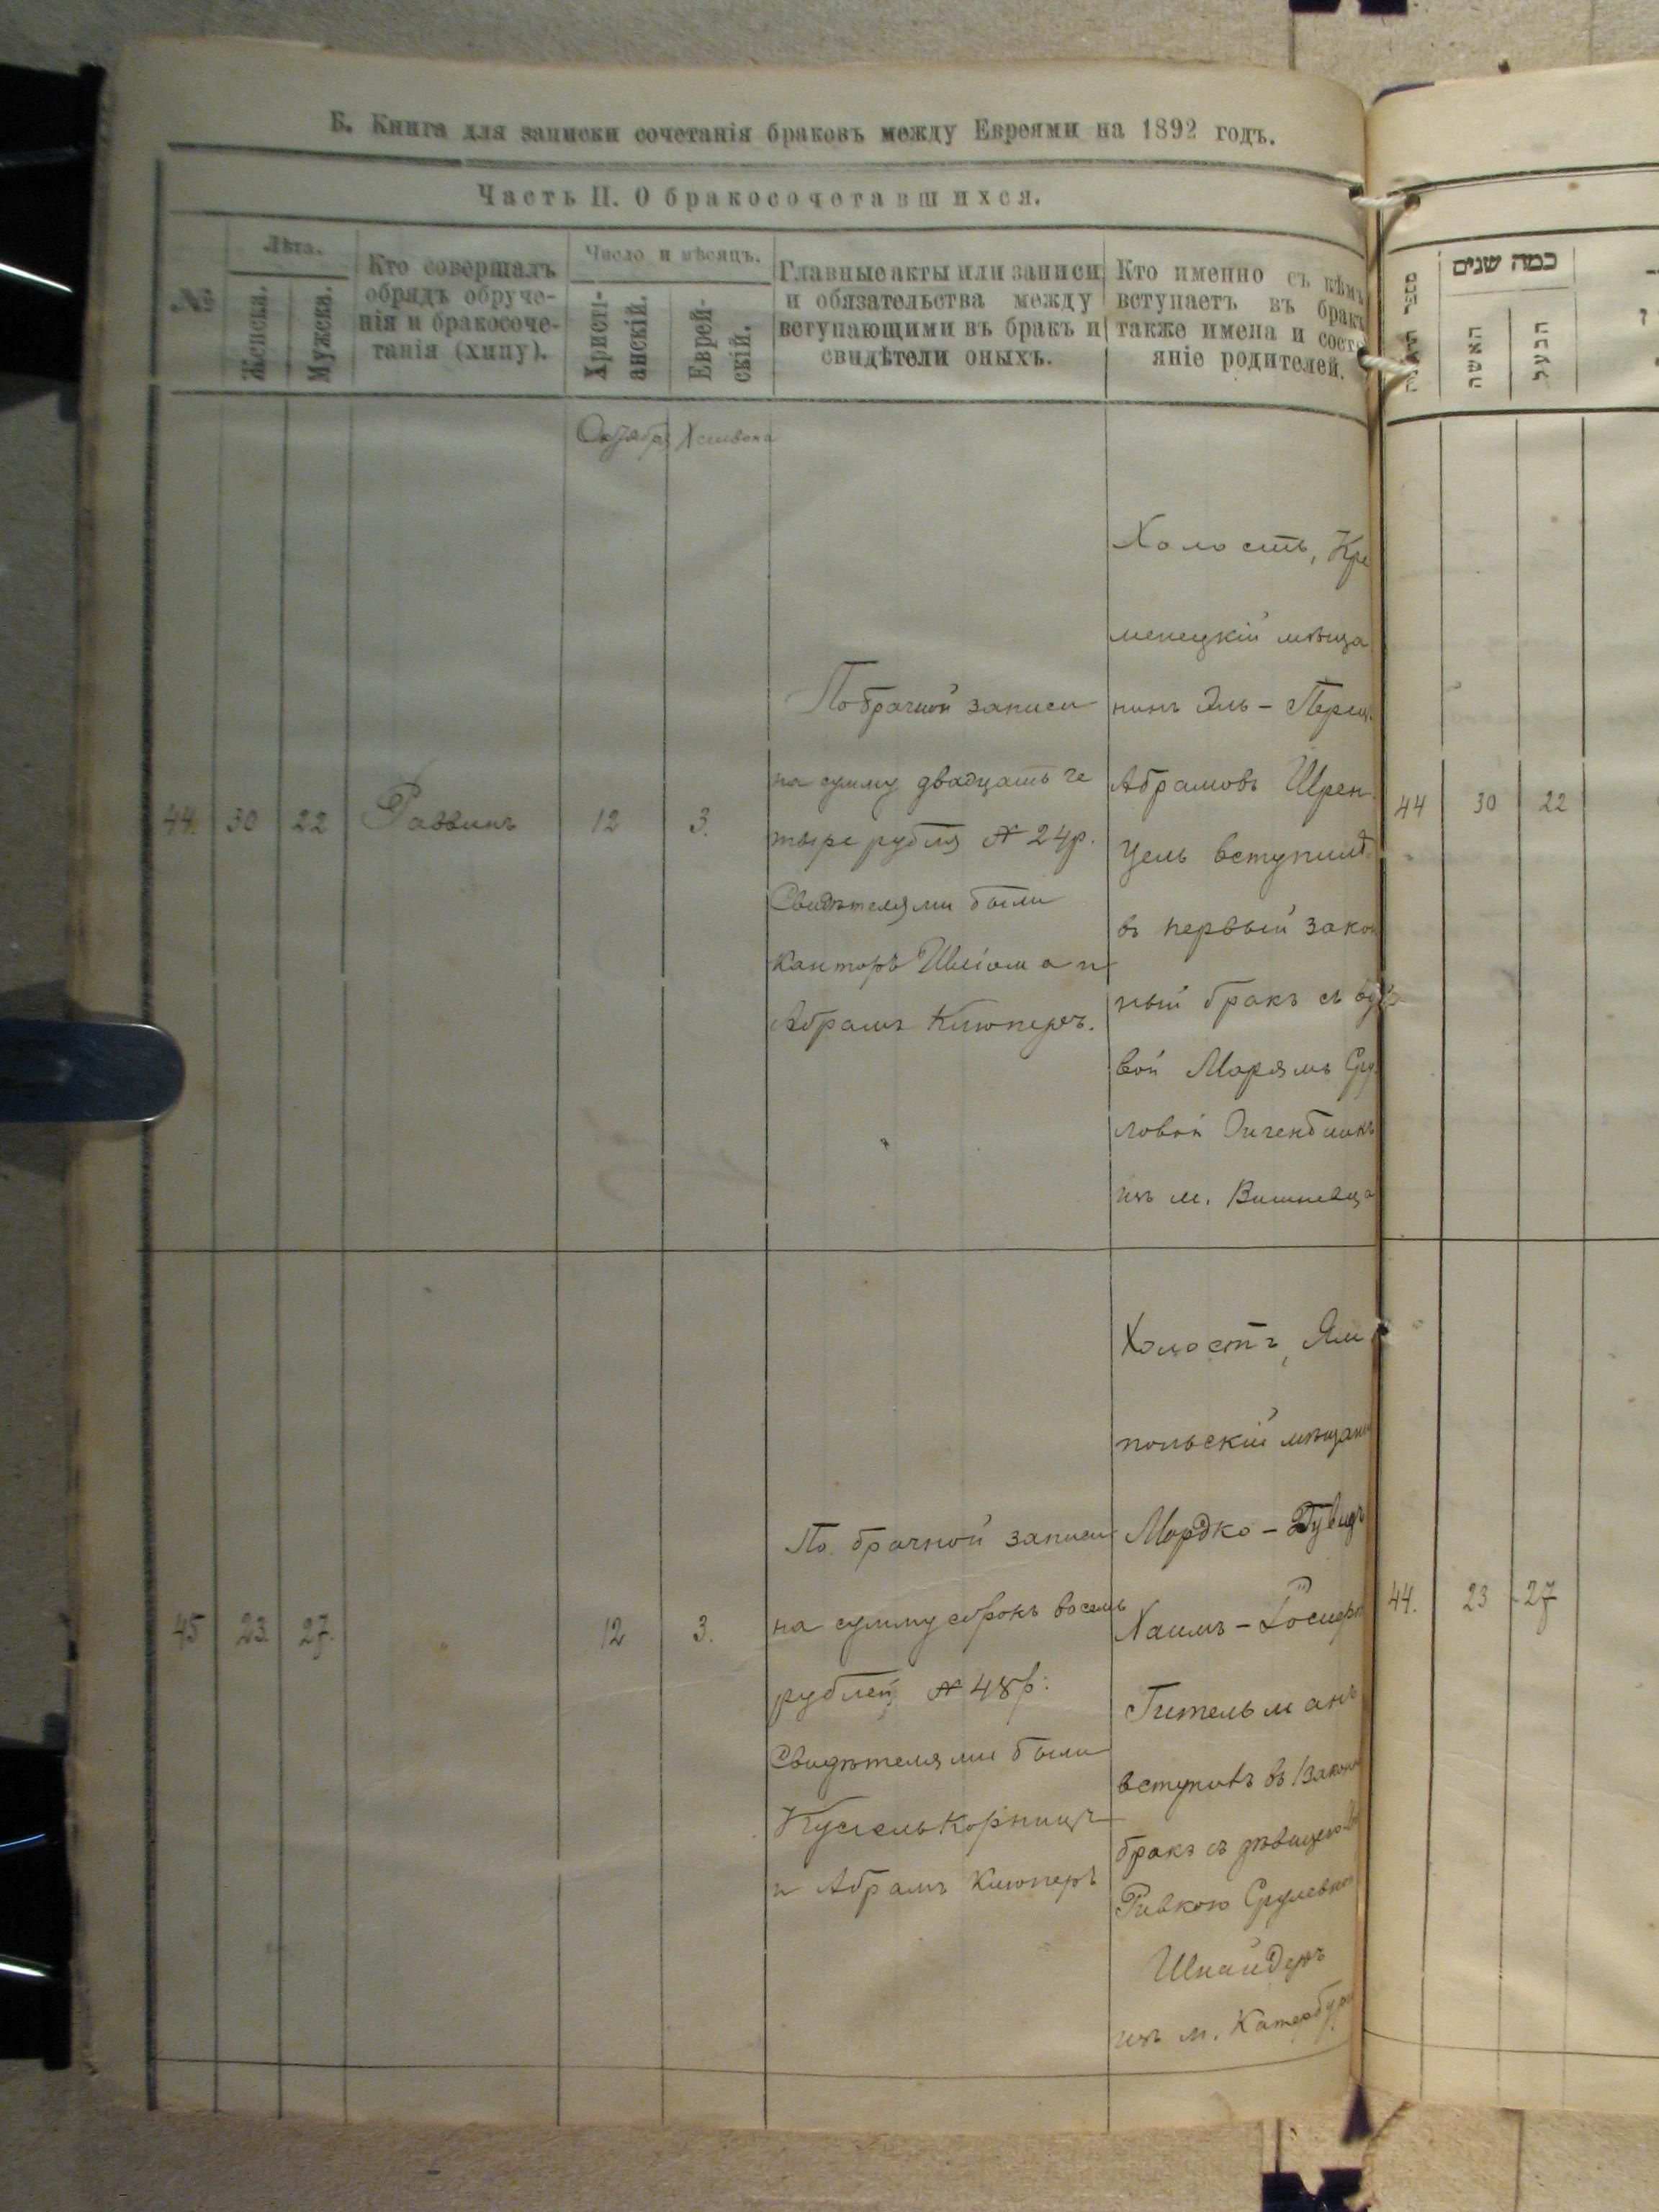 Б. Книга для записки сочетанія браковъ между Евреями на 1892 годъ.
Часть II. О бракосочетавшихся.
№
Лѣта.
Женска.
Мужска.
Кто совершалъ
обрядъ обруче-
нія и бракосоче-
танія (хипу).
Число и мѣсяцъ.
Христі-
анскій.
Еврей-
скій.
Главные акты или записи
и обязательства между
вступающими въ бракъ и
свидѣтели оныхъ.
Кто именно съ кѣмъ
вступаетъ въ бракъ
также имена и состо
яніе родителей.
Октября Хешвона
44. 30 22 Раввинъ 12 3.
По брачной записи
на сумму двадцать че
тыре рубля 24 р.
Свидѣтелями были
Канторъ и
Абрамъ Клюперъ.
Холостъ, Кре
менецкій мѣща
нинъ Эль-Перец
Абрамовъ Шрен
цель вступилъ
въ первый закон
ный бракъ съ вдо
вой Марямъ Сру
ловой
изъ м. Вишневца
45 23. 27. 12 3.
По брачной записи
на сумму сорокъ восемь
рублей 48 р.
Свидѣтелями были
Кусель Корницъ
и Абрамъ Клюперъ
Холостъ, Ям
польскій мѣщанин
Мордко-Дувидъ
Хаимъ-
Гительманъ
вступивъ въ 1 законн
бракъ съ дѣвицею
Ривкою Срулевной
Шнайдеръ
изъ м. Катербур
מספר
כמה שנים
האשה
הבעל
44 30 22
44. 23 27